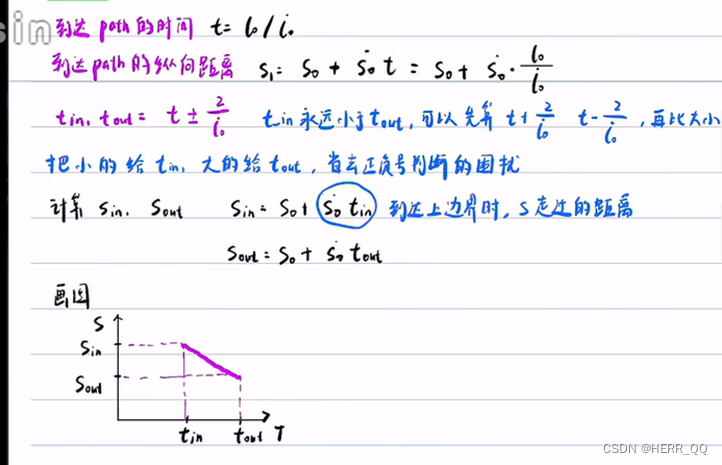 sin
到达 path 的时间 t = l₀ / l̇₀
到达 path 的纵向距离 S₁ = S₀ + Ṡ₀ t = S₀ + Ṡ₀ · l₀/l̇₀
tin, tout = t ± 2/l̇₀ tin 永远小于 tout, 可以先算 t + 2/l̇₀ t - 2/l̇₀, 再比大小
把小的给 tin, 大的给 tout, 省去正负号判断的困扰
计算 Sin, Sout Sin = S₀ + Ṡ₀ tin 到达上边界时, S走过的距离
Sout = S₀ + Ṡ₀ tout
画图
S
Sin
Sout
tin tout T
CSDN @HERR_QQ